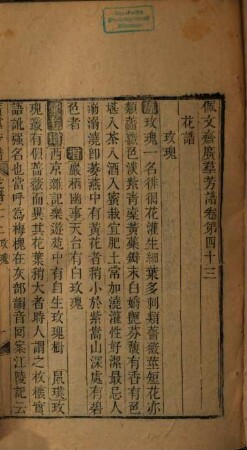 佩文齋廣羣芳譜卷第四十三
花譜
玫瑰
玫瑰一名徘徊花灌生細葉多刺類薔薇莖短花亦
類薔薇色淡紫青橐黃蘂瓣末白嬌艷芬馥有香有色
堪入茶入酒入蜜栽宜肥土常加澆灌性好潔最忌人
溺溺澆卽萎燕中有黃花者稍小於紫嵩山深處有碧
色者 嚴栖幽事天台有白玫瑰
西京雜記樂遊苑中有自生玫瑰樹 鼠璞玫
瑰叢有似薔薇而異其花葉稍大者時人謂之枚櫰實
語訛強名也當呼為梅槐在灰部韻音回案江陵記云